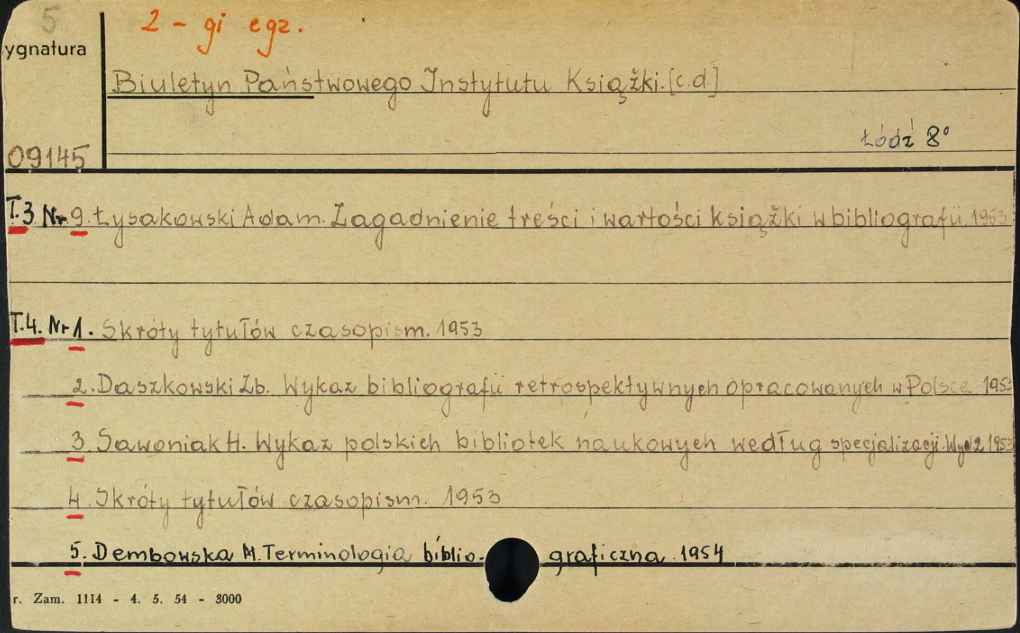 5
2 - gi egz.
ygnatura
Biuletyn Państwowego Instytutu Książki. [c.d]
Łódź 8°
09145
T.3 Nr 9. Łysakowski Adam. Zagadnienie treści i wartości książki w bibliografii. 1953
T.4. Nr 1. Skróty tytułów czasopism. 1953
2. Daszkowski Zb. Wykaz bibliografii retrospektywnych opracowanych w Polsce 1953
3. Sawoniak H. Wykaz polskich bibliotek naukowych według specjalizacji. Wyd 2 1953
4. Skróty tytułów czasopism. 1953
5. Dembowska M. Terminologia biblio-graficzna. 1954
r. Zam. 1114 - 4. 5. 54 - 3000